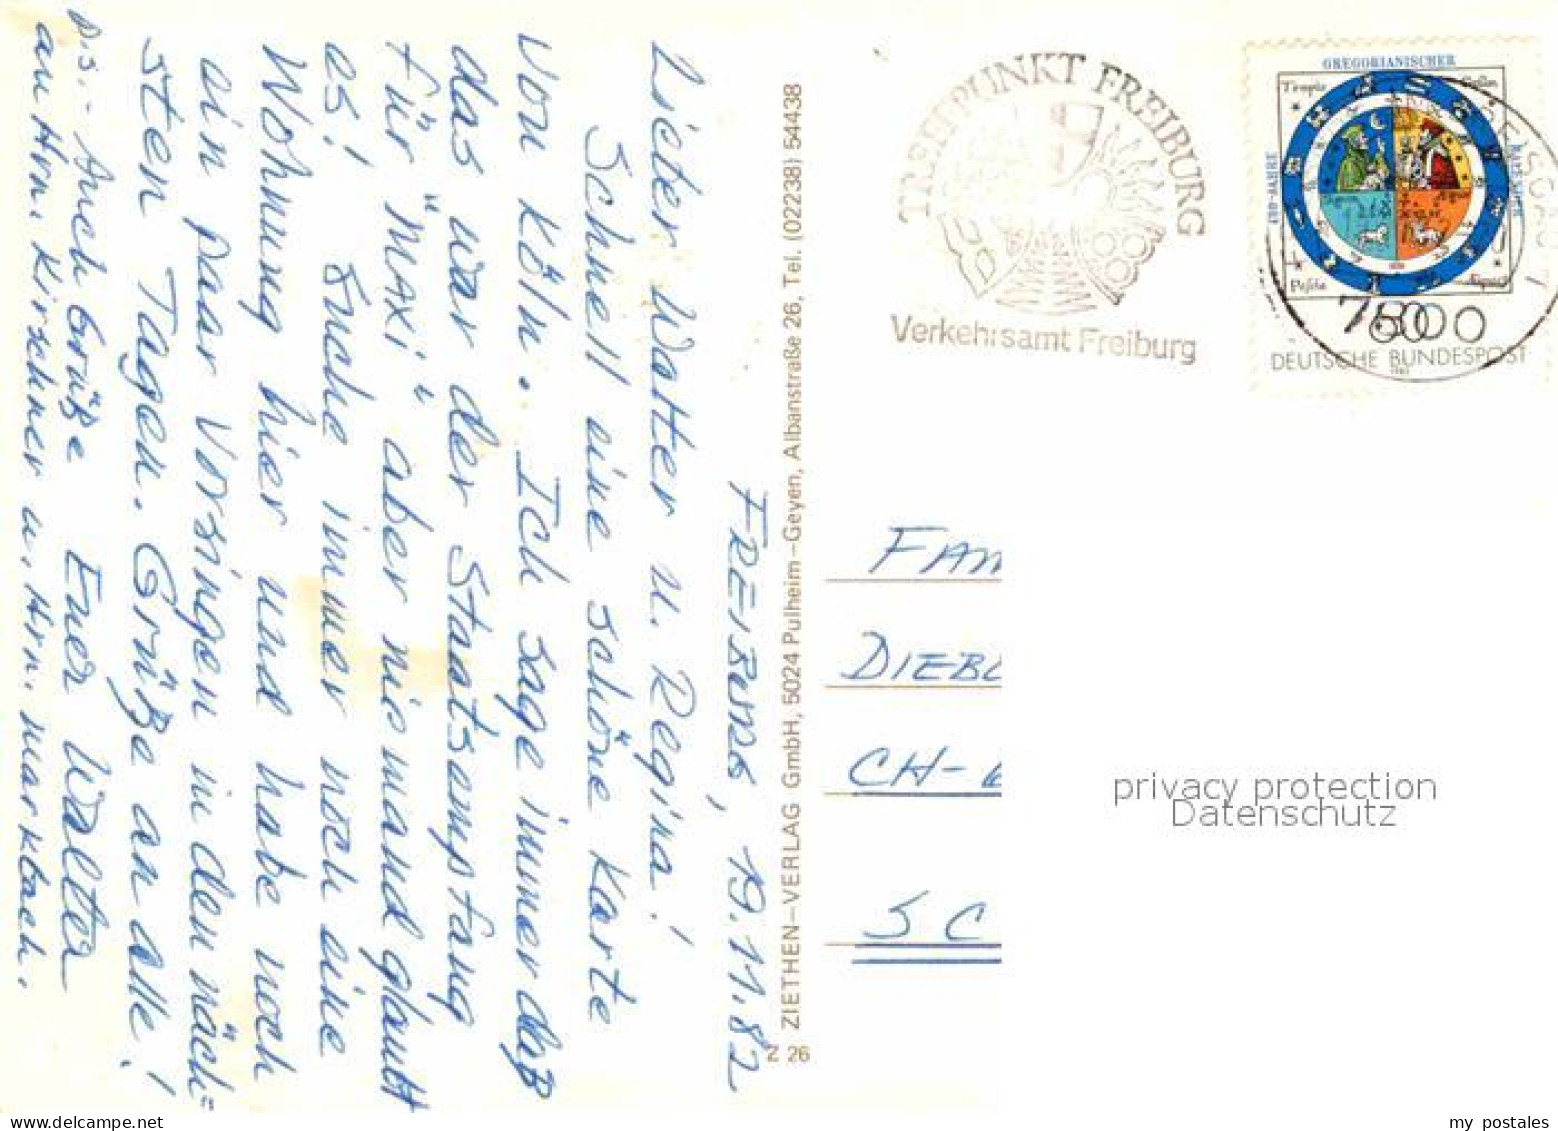 FREIBURG, 19.11.82
Lieber Walter u. Regina!
Schnell eine schöne Karte
von Köln. Ich sage immer daß
das war der Staatsempfang
für "Maxi" aber niemand glaubt
es! Suche immer noch eine
Wohnung hier und habe noch
ein paar Vorsingen in den näch=
sten Tagen. Grüße an alle!
Euer Walter
P.S. - Auch Grüße
an Hrn. Kirschner u. Hrn. Marxbach.
ZIETHEN-VERLAG GmbH, 5024 Pulheim-Geyen, Albanstraße 26, Tel. (02238) 54438
Z 26
TREFFPUNKT FREIBURG
Verkehrsamt Freiburg
GREGORIANISCHER
KALENDER
400 JAHRE
60
DEUTSCHE BUNDESPOST
1982
7800
FAM
DIEBO
CH-6
SC
privacy protection
Datenschutz
my postales